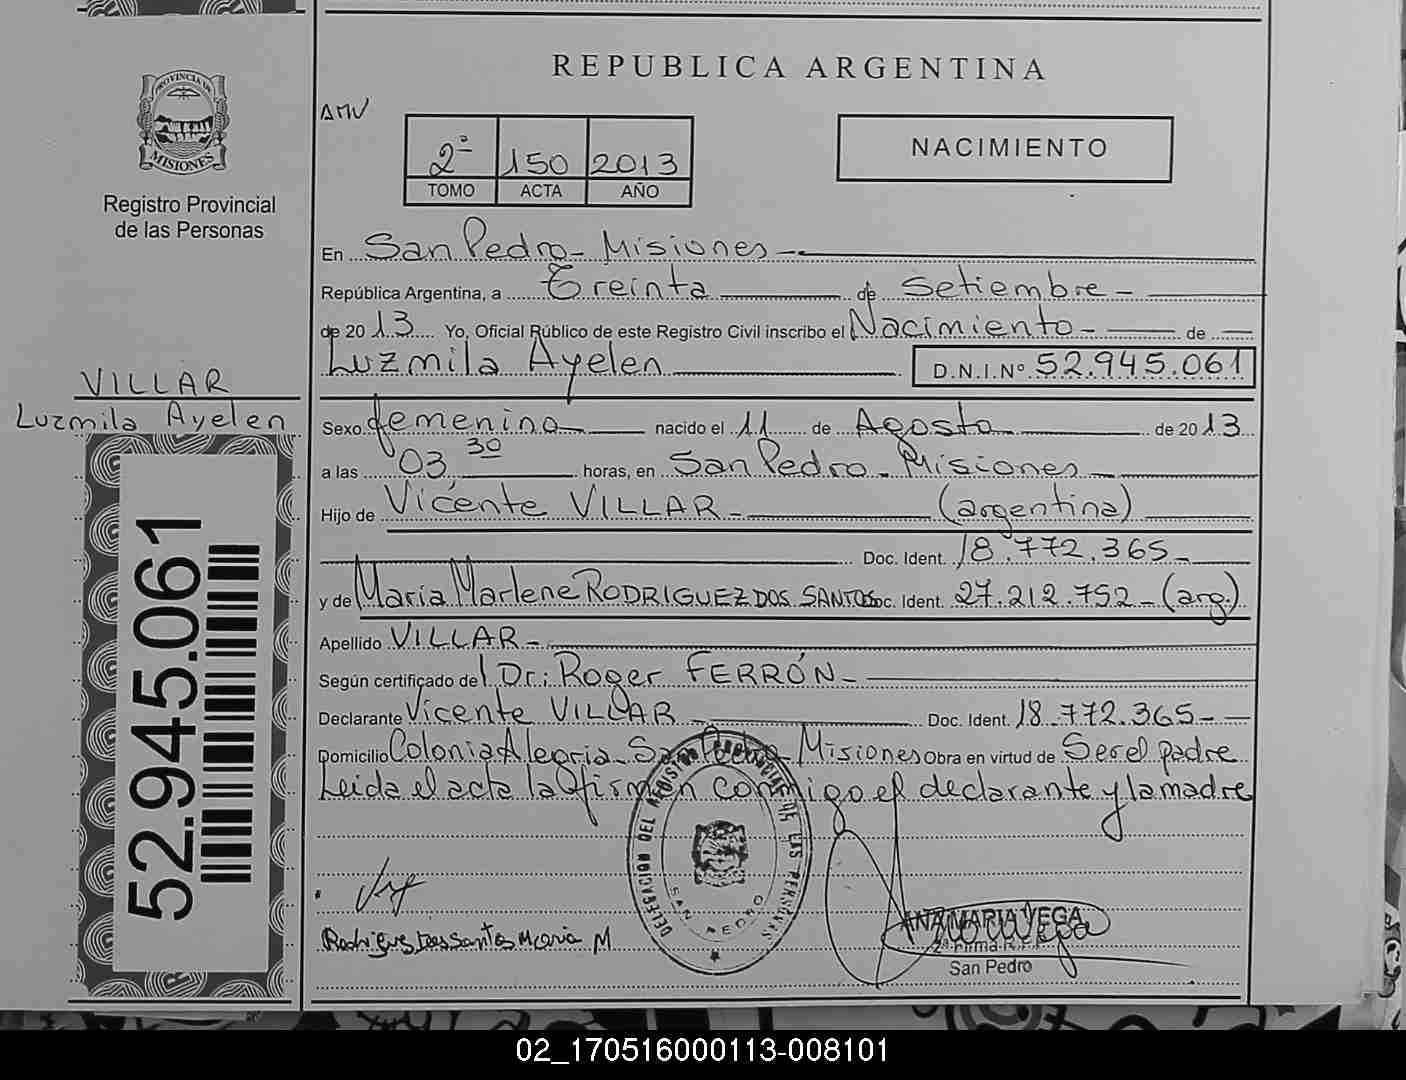 REPUBLICA ARGENTINA
PROVINCIA DE MISIONES
Registro Provincial
de las Personas
AMV
2ª 150 2013
TOMO ACTA AÑO
NACIMIENTO
En San Pedro - Misiones -
República Argentina, a Treinta de Setiembre -
de 2013 Yo, Oficial Público de este Registro Civil inscribo el Nacimiento - de
Luzmila Ayelen D.N.I.Nº 52.945.061
VILLAR
Luzmila Ayelen
52.945.061
Sexo femenino nacido el 11 de Agosto de 2013
a las 03 30 horas, en San Pedro - Misiones -
Hijo de Vicente VILLAR - (argentina)
Doc. Ident. 18.772.365 -
y de Maria Marlene RODRIGUEZ DOS SANTOS Doc. Ident. 27.212.752 - (arg.)
Apellido VILLAR -
Según certificado del Dr: Roger FERRÓN -
Declarante Vicente VILLAR - Doc. Ident. 18.772.365 -
Domicilio Colonia Alegria - San Pedro - Misiones Obra en virtud de Ser el padre
Leida el acta la firman conmigo el declarante y la madre
DELEGACION DEL REGISTRO PROVINCIAL DE LAS PERSONAS
SAN PEDRO
Rodrigues Dos Santos Maria M
ANA MARIA VEGA
2ª Firma R.C.P.
San Pedro
02_170516000113-008101